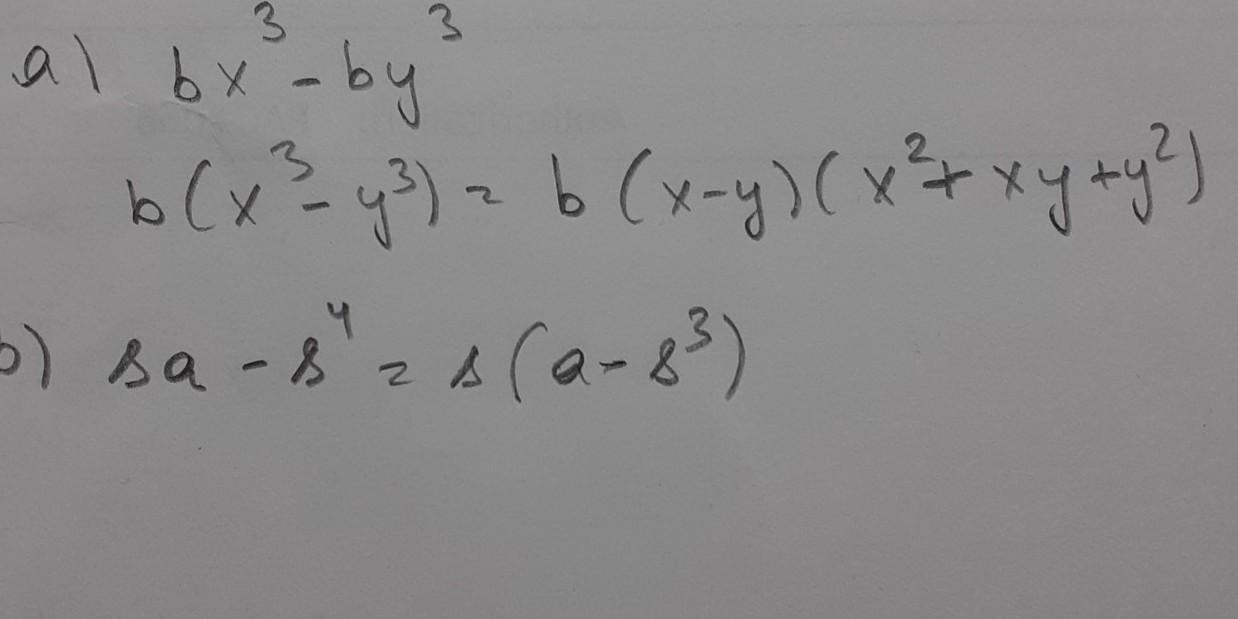 a) bx³ - by³
b(x³ - y³) = b(x-y)(x² + xy + y²)
b) sa - s⁴ = s(a - s³)